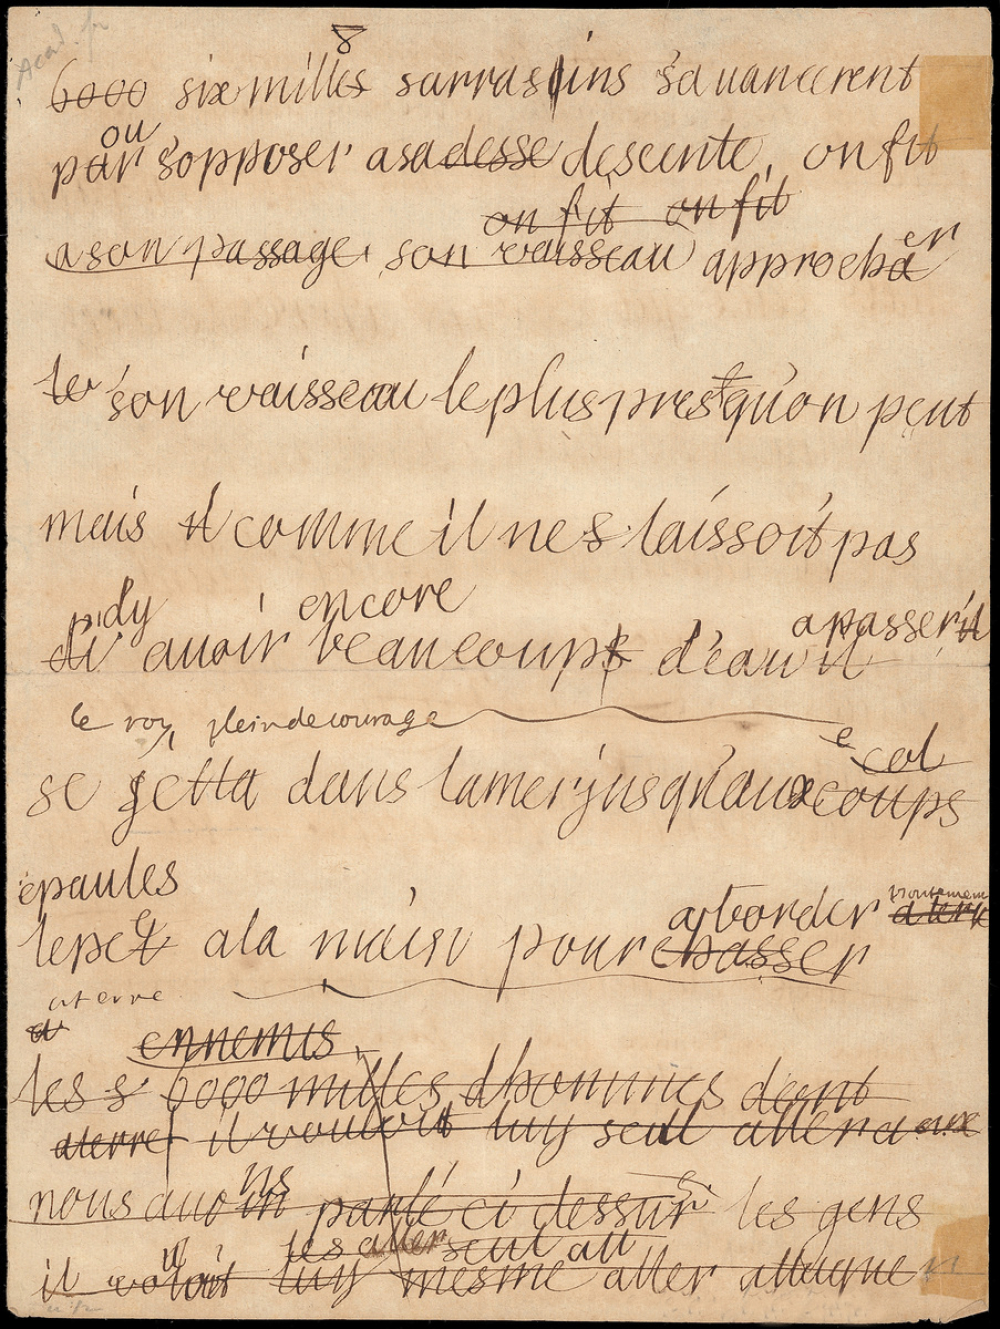 Acad. fr
8
6000 six milles sarrassins s'avancerent
ou
par s'opposer asa desse descente, on fit
on fit on fit
a son passage son vaisseau approcha er
ter son vaisseau le plus pres qu'on peut
mais il comme il ne s laissoit pas
dy encore
di avoir beaucoup d'eau il a passer il
le roy plein de courage
e col
se jetta dans la mer jusqu'aux coups
epaules
aborder
l'epet a la main pour chasser a terre
a terre
a
ennemis
les s 6000 milles dhommes dont
aterre il vouloit luy seul aller a aux
ns
nous avoin parlé ci dessur les gens
les aller seul all
il voloit luy mesme aller attaquer